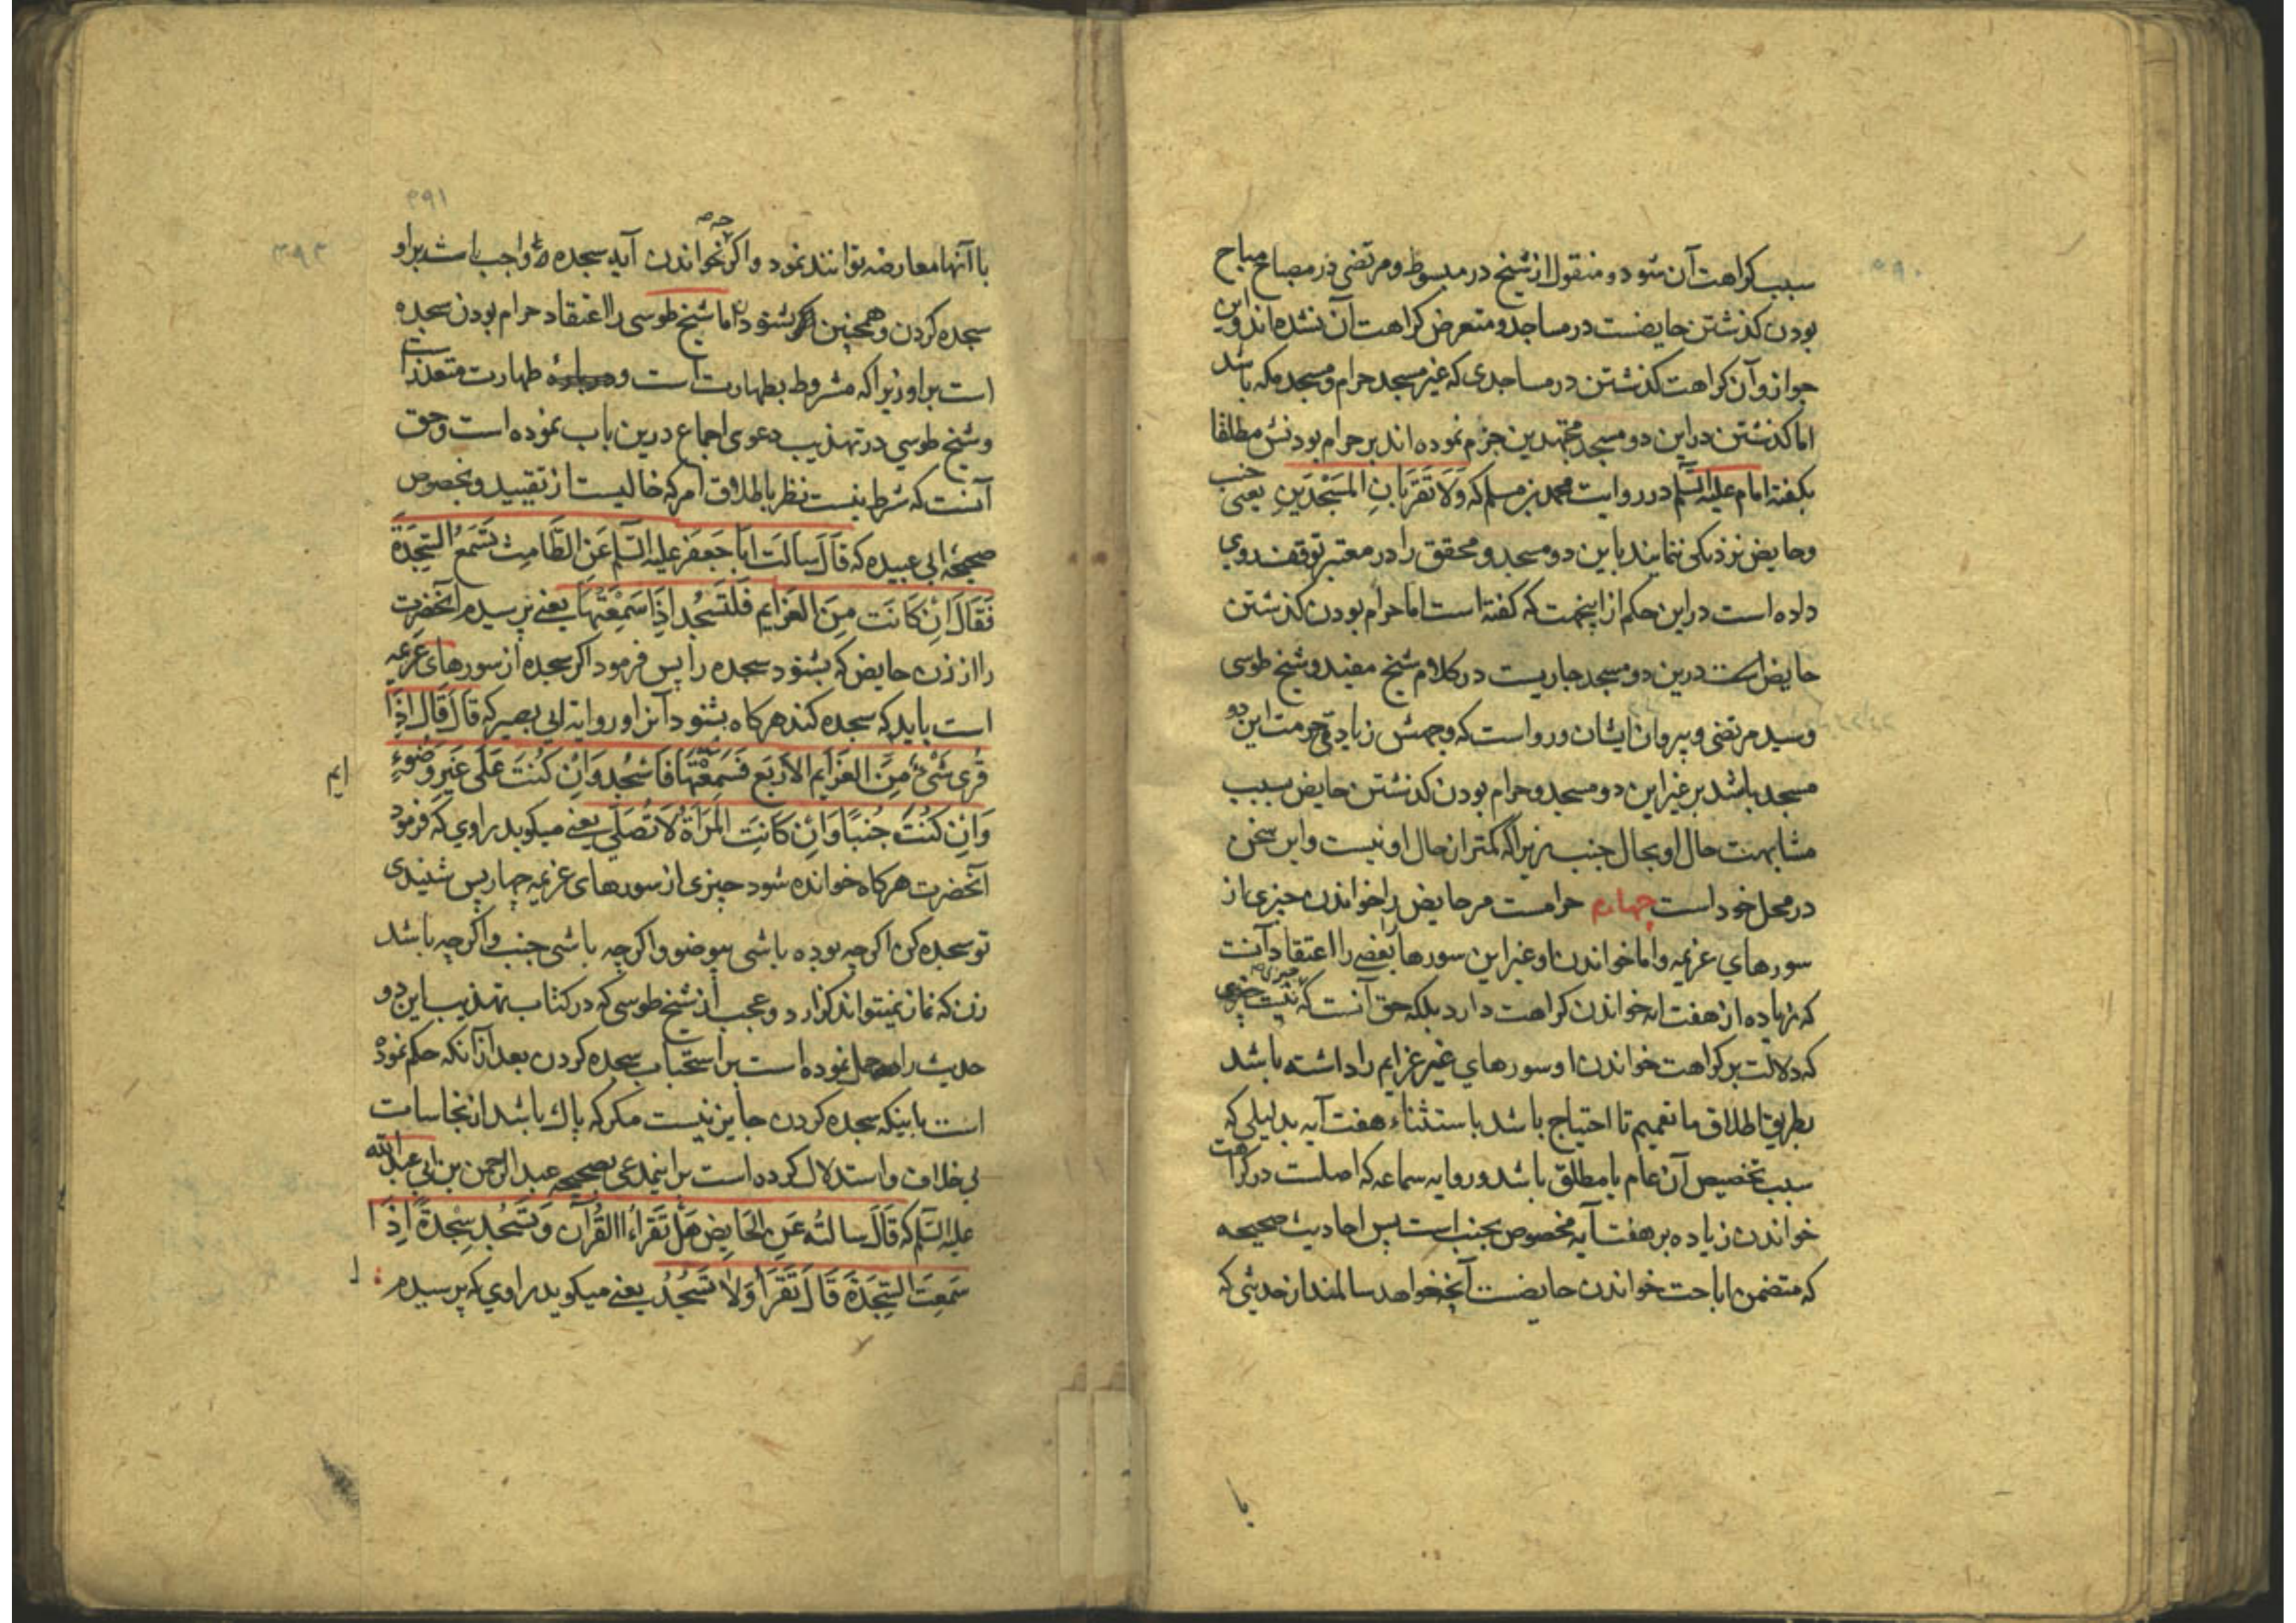 سبب کراهت آن شود و منقول از شیخ در مبسوط و مرتضی در مصباح مباح
بودن کذشتن حایضست در مساجد و متعرض کراهت آن نشده‌اند و این
جواز و آن کراهت کذشتن در مساجدی که غیر مسجد حرام و مسجد مکه باشد
اما کذشتن در این دو مسجد مجتهدین جزم نموده‌اند بر حرام بودنش مطلقا
بکفته امام علیه السلم در روایت محمد بن مسلم که وَلَا تَقرَبَانِ المَسْجِدَینِ یعنی جنب
و حایض نزدیکی ننمایند باین دو مسجد و محقق را در معتبر توقف روی
داده است در این حکم از اینجهت که کفته است اما حرام بودن کذشتن
حایض است درین دو مسجد جاریست در کلام شیخ مفید و شیخ طوسی
و سید مرتضی و پیروان ایشان و رواست که وجهش زیادتی حرمت این دو
مسجد باشد بر غیر این دو مسجد و حرام بودن کذشتن حایض بسبب
مشابهت حال او بحال جنب زیرا که کمتر از حال او نیست و این سخن
در محل خود است چهارم حرامست مر حایض را خواندن چیزی از
سورهای عزیمه و اما خواندن او غیر این سورها بعضی را اعتقاد آنست
که زیاده از هفت ایه خواندن کراهت دارد بلکه حق آنست که نیست چیزی
که دلالت بر کراهت خواندن او سورهای غیر عزایم را داشته باشد
بطریق اطلاق یا تعمیم تا احتیاج باشد باستثناء هفت آیه بدلیلی که
سبب تخصیص آن عام یا مطلق باشد و روایه سماعه که اصلست در کراهت
خواندن زیاده بر هفت آیه مخصوص بجنب است پس احادیث صحیحه
که متضمن اباحت خواندن حایضست آنچه خواهد سالمند از حدیثی که
یا
۳۹۱
با آنها معارضه توانند نمود و اکر نخواندن آیه سجده واجب باشد بر او
سجده کردن و همچنین اکر بشنود اما شیخ طوسی را اعتقاد حرام بودن سجده
است بر او زیرا که مشروط بطهارت است و طهارت متعذر است
و شیخ طوسی در تهذیب دعوی اجماع درین باب نموده است و حق
آنست که شرط نیست نظر باطلاق امر که خالیست از تقیید و بخصوص
صحیحه ابی عبیده که قَالَ سَالَت اَبَا جَعفَر علیه السلم عَنِ الطَّامِث تَسمَعُ السَّجدَةَ
فَقَالَ اِن کَانَت مِنَ العَزَایم فَلتَسجُد اِذَا سَمِعَتهَا یعنی پرسیدم آنحضرت
را از زن حایض که بشنود سجده را پس فرمود اکر سجده از سورهای عزیمه
است باید که سجده کند هرکاه بشنود آنرا و روایه ابی بصیر که قَالَ قَالَ اِذَا
قُرِی شَیءٌ مِنَ العَزَایم الاَربَع فَسَمِعتَهَا فَاسجُد وَاِن کُنتَ عَلَی غَیرِ وُضُوءٍ
وَاِن کُنتَ جُنبًا وَاِن کَانَتِ المَرأَةُ لَا تُصَلّی یعنی میکوید راوی که فرمود
آنحضرت هرکاه خوانده شود چیزی از سورهای عزیمه چهار پس شنیدی
تو سجده کن اکرچه بوده باشی بی وضو و اکرچه باشی جنب و اکرچه باشد
زن که نماز نمیتواند کزارد و عجب از شیخ طوسی که در کتاب تهذیب این دو
حدیث را حمل نموده است بر استحباب سجده کردن بعد از آنکه حکم نموده
است باینکه سجده کردن جایز نیست مکر که پاک باشد از نجاسات
بی خلاف و استدلال کرده است بر اینمدعی بصحیحه عبد الرحمن بن ابی عبد الله
علیه السلم که قَالَ سَالتُه عَنِ الحَایِضِ هَل تَقرَاءُ القُرآن وَتَسجُد سِجدَةً اِذَا
سَمِعَت السَّجدَةَ قَالَ تَقرَأ وَلَا تَسجُدُ یعنی میکوید راوی که پرسیدم